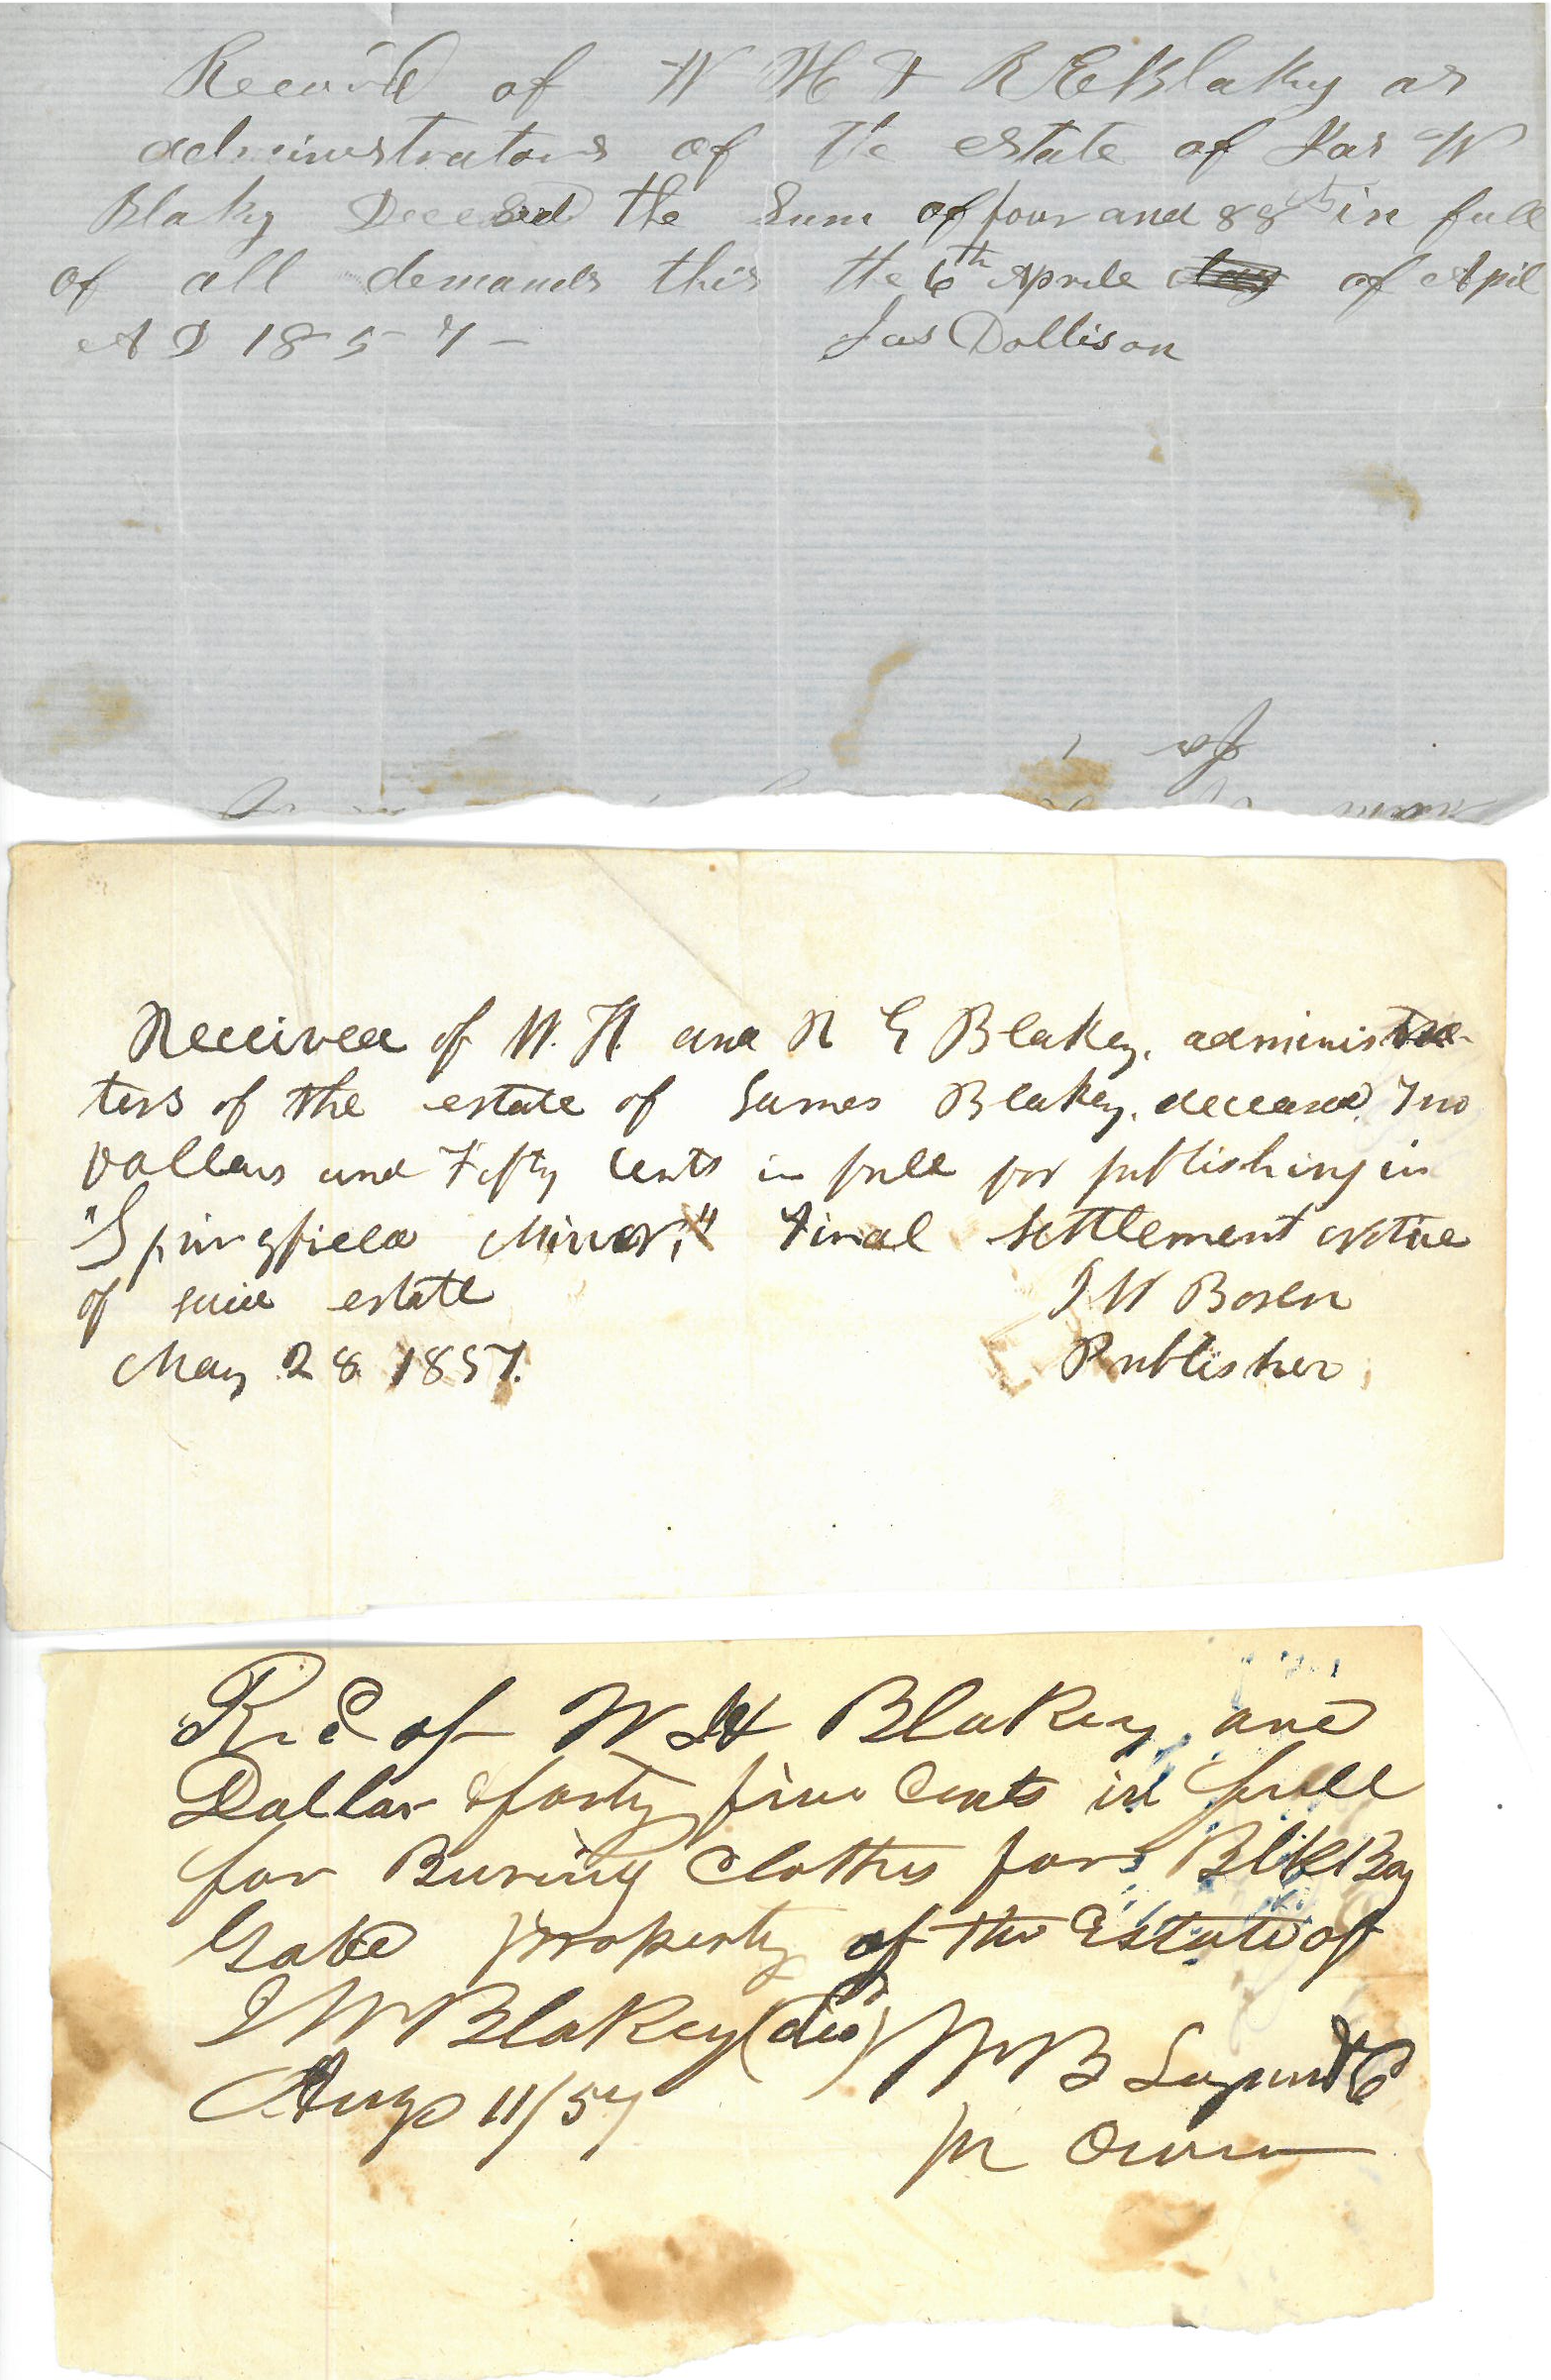 Recvd of W H & R E Blakey as
administrators of the estate of Jas W
Blakey Deceesed the Sum of four and 88 in full
of all demands this the 6th Aprile of Apil
A D 1857 –
Jas Dollison
Received of W. H. and R E Blakey, administra-
tors of the estate of James Blakey, deceased, Two
Dollars and Fifty Cents in full for publishing in
"Springfield Mirror," Final Settlement notice
of said estate
J W Boren
May 28 1857.
Publisher
Recd of W H Blakey one
Dollar & forty five Cents in full
for Buring Clothes for Blk Boy
Gabe property of the Estate of
J W Blakey (decd)
W B & Co
Aug 11/57